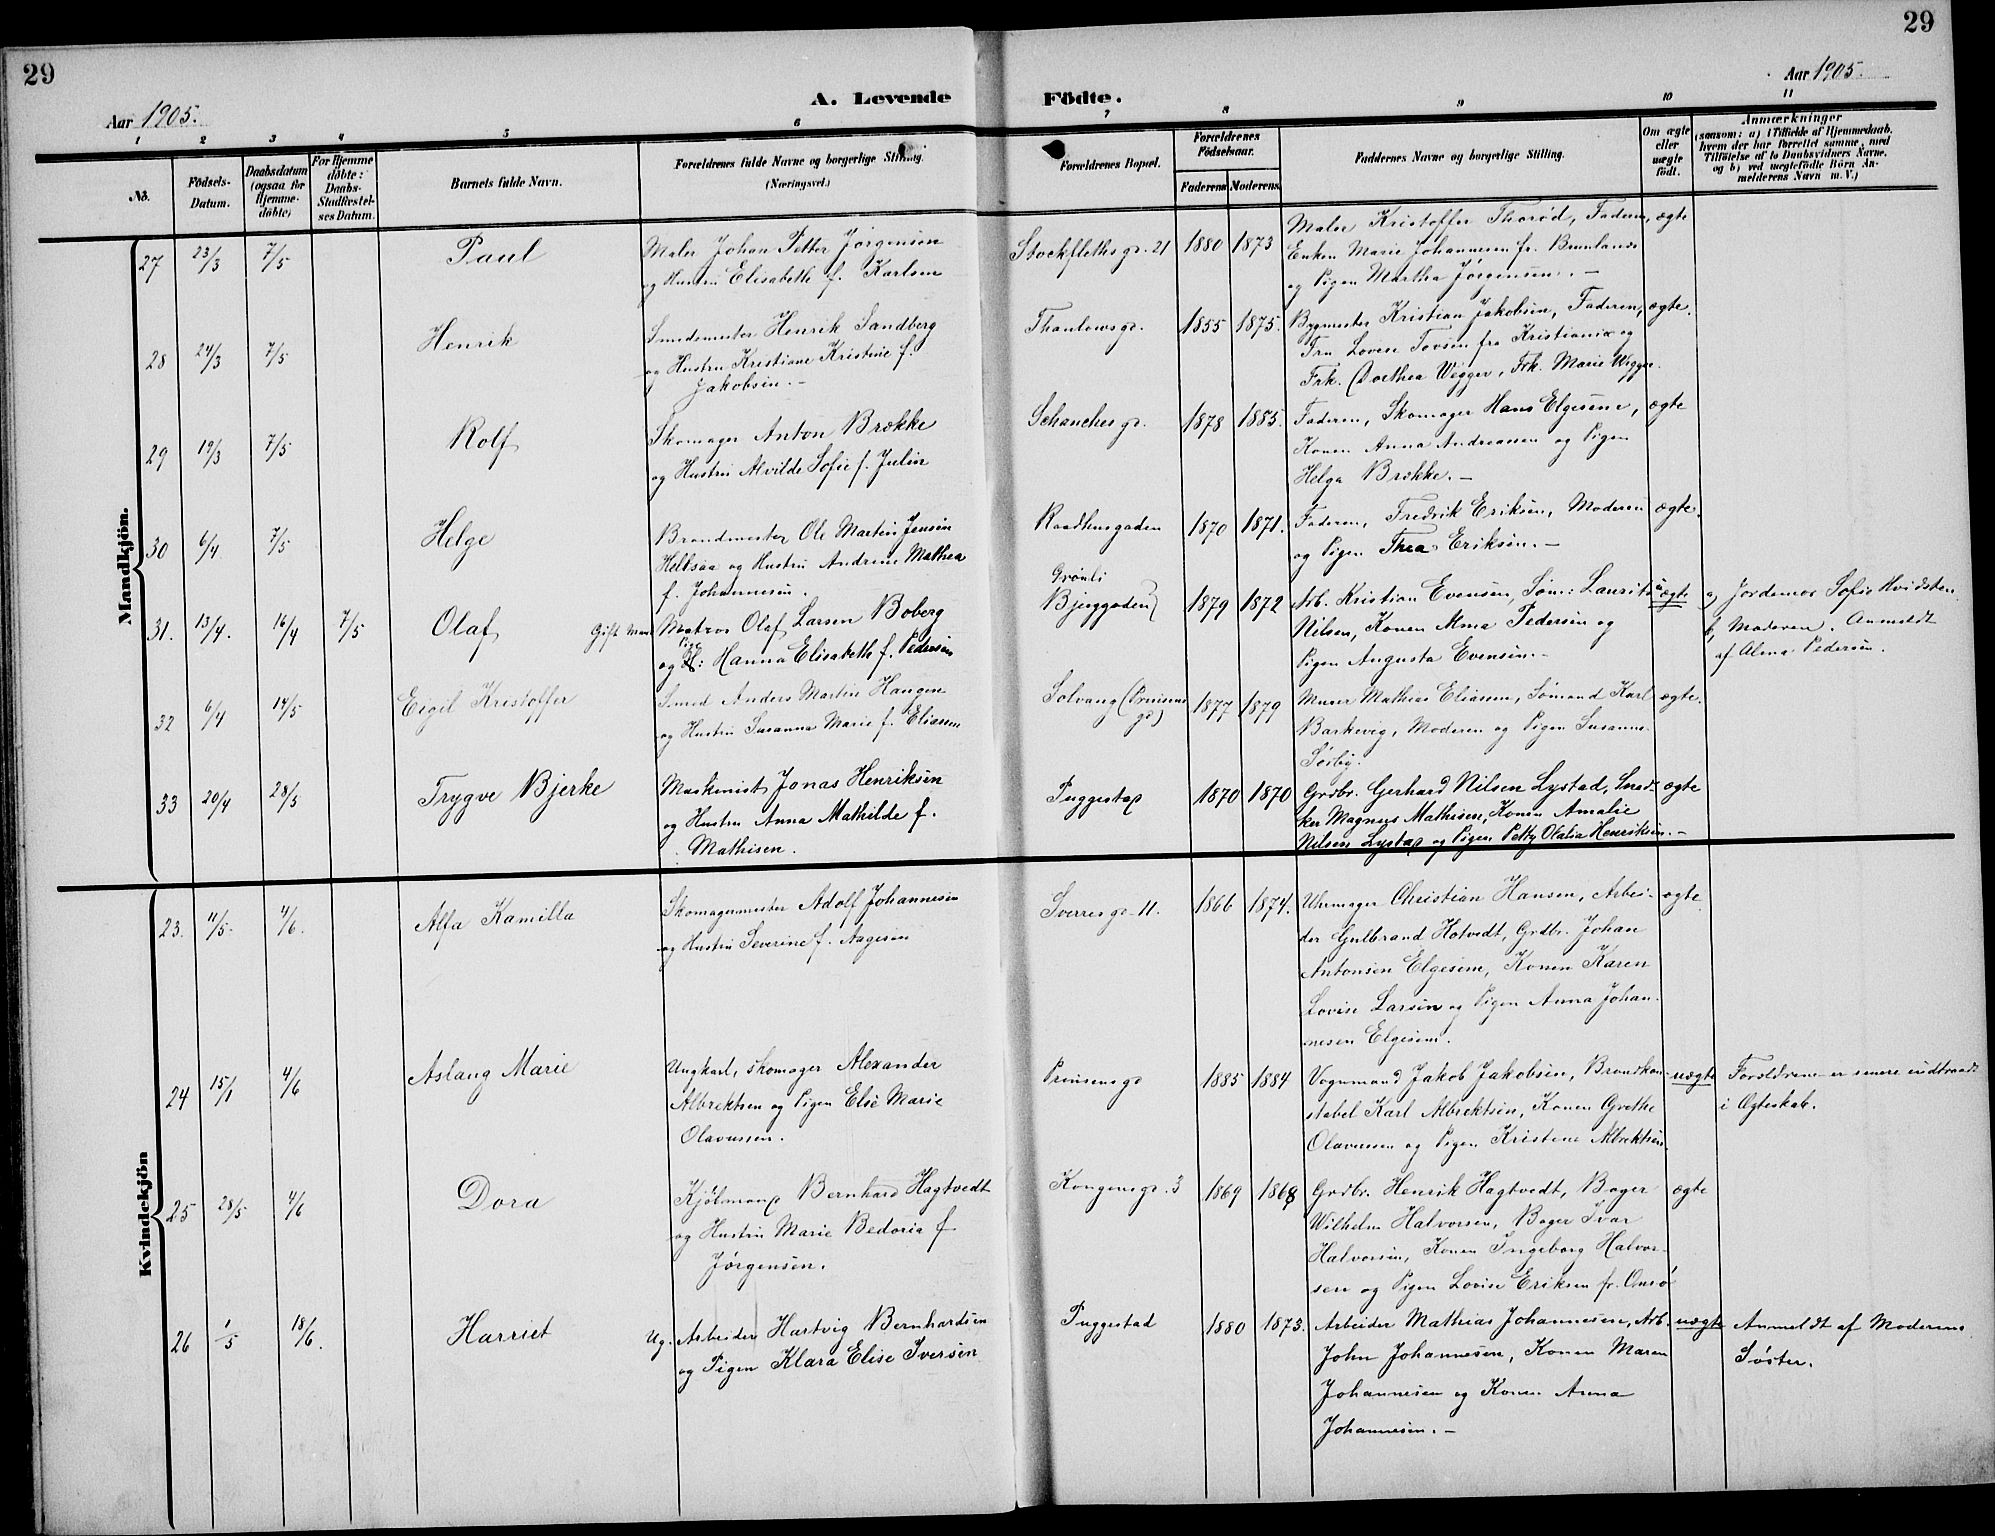 29
29
Aar 1905.
A. Levende Födte.
Aar 1905.
1 2 3 4 5 6 7 8 9 10 11
No.
Födsels-Datum.
Daabsdatum (ogsaa for Hjemme-döbte)
For Hjemme döbte: Daabs-Stadfæstel-ses Datum.
Barnets fulde Navn.
Forældrenes fulde Navne og borgerlige Stilling. (Næringsvei.)
Forældrenes Bopæl.
Forældrenes Födselsaar.
Faderens Moderens
Faddernes Navne og borgerlige Stilling.
Om ægte eller uægte födt.
Anmærkninger
(saasom: a) i Tilfælde af Hjemmedaab, hvem der har forrettet samme, med Tilföielse af to Daabsvidners Navne, og b) ved uægtefödte Börn An-melderens Navn m. V.)
Mandkjön.
27 23/3 7/5 Paul
Maler Johan Petter Jørgensen
og Hustru Elisabeth f. Karlsen
Stockflethsgd. 21 1880 1873
Maler Kristoffer Thorød, Faderen, ægte
Enken Marie Johannesen fr. Brunlanes
og Pigen Martha Jørgensen. —
28 24/3 7/5 Henrik
Smedemester Henrik Sandberg
og Hustru Kristiane Kristine f.
Jakobsen. —
Thaulowsgd. 1855 1875.
Bygmester Kristian Jakobsen, Faderen, ægte.
Fru Lovise Tovsen fra Kristiania og
Frk. Dorthea Wegger, Frk. Marie Wegger.
29 19/3 7/5 Rolf
Skomager Anton Brække
og Hustru Alvilde Sofie f. Julin
Schanchesgd. 1878 1885.
Faderen, Skomager Hans Elgesem, ægte
Konen Anna Andreasen og Pigen
Helga Brække. —
30 6/4. 7/5 Helge
Brandmester Ole Martin Jensen
Hellsaa og Hustru Andrine Mathea
f. Johannesen.
Raadhusgaden 1870 1871.
Faderen, Fredrik Eriksen, Moderen ægte.
og Pigen Thea Eriksen. —
31. 13/4. 16/4 7/5 Olaf
Gift Mand Matros Olaf Larsen Boberg
og Pige: Hanna Elisabeth f. Pedersen
Grønli
Bjerggaden 1879 1872
Arb. Kristian Evensen, Søm: Laurits uægte
Nilsen, Konen Alma Pedersen og
Pigen Augusta Evensen. —
a, Jordemor Sofie Hvidsten
b, Moderen. Anmeldt
af Alma Pedersen.
32 6/4 14/5 Eigil Kristoffer
Smed Anders Martin Haugen
og Hustru Susanna Marie f. Eliasen
Solvang (Prinsens gd) 1877 1879
Murer Mathias Eliasen, Sømand Karl ægte.
Barkevig, Moderen og Pigen Susanne
Søiby.
33 20/4 28/5 Trygve Bjerke
Maskinist Jonas Henriksen
og Hustru Anna Mathilde f.
Mathisen.
Puggestad 1870 1870
Grdbr. Gerhard Nilsen Lystad, Sned- ægte
ker Magnus Mathisen, Konen Amalie
Nilsen Lystad og Pigen Petty Olalia Henriksen. —
Kvindekjön
23. 11/5. 4/6. Alfa Kamilla
Skomagermester Adolf Johannesen
og Hustru Severine f. Aagesen
Sverresgd. 11. 1866 1874.
Uhrmager Christian Hansen, Arbei- ægte.
der Gulbrand Hotvedt, Grdbr. Johan
Antonsen Elgesem, Konen Karen
Lovise Larsen og Pigen Anna Johan-
nesen Elgesem.
24 15/1 4/6 Aslaug Marie
Ungkarl, skomager Alexander
Albrektsen og Pigen Else Marie
Olavessen.
Prinsensgd 1885 1884
Vognmand Jakob Jakobsen, Brandkon- uægte
stabel Karl Albrektsen, Konen Grethe
Olavessen og Pigen Kristine Albrektsen
Forældrene er senere indtraadt
i Ægteskab.
25 28/5 4/6 Dora
Kjølmand Bernhard Hagtvedt
og Hustru Marie Bedoria f.
Jørgensen.
Kongensgd. 3 1869 1868
Grdbr. Henrik Hagtvedt, Bager ægte
Wilhelm Halvorsen, Bager Ivar
Halvorsen, Konen Ingeborg Halvor-
sen og Pigen Lovise Eriksen fr. Onsø
26 1/5 18/6. Harriet
Ug. Arbeider Hartvig Bernhardsen
og Pigen Klara Elise Iversen
Puggestad 1880 1873.
Arbeider Mathias Johannesen, Arb. uægte
John Johannesen, Konen Maren
Johannesen og Konen Anna
Johannesen. —
Anmeldt af Moderens
Søster.